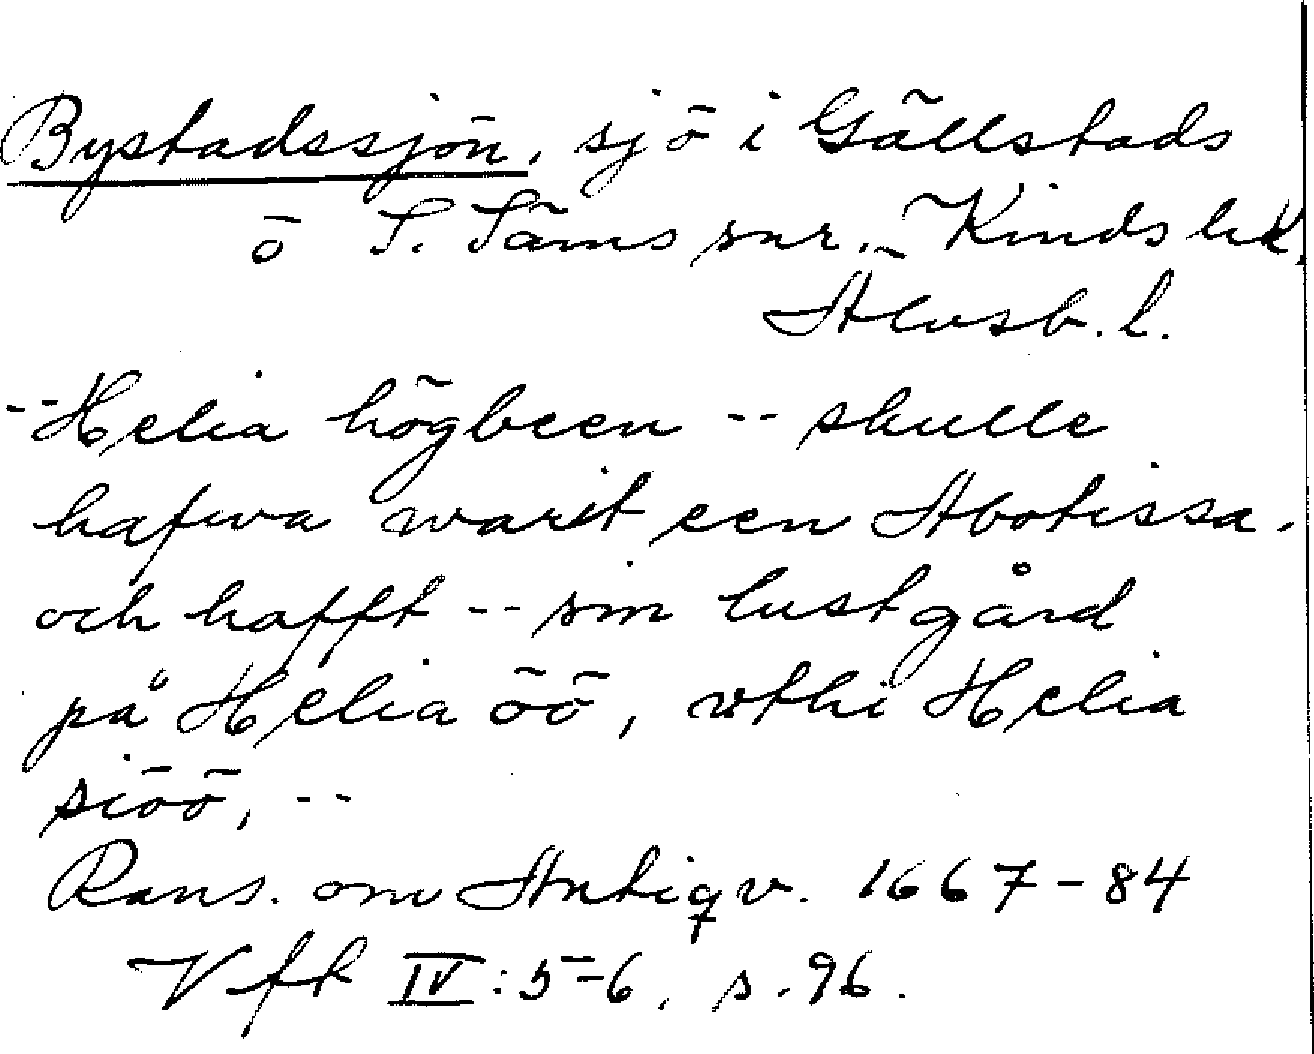 Bystadssjön, sjö i Gällstads
o S. Säms snr., Kinds hd,
Älvsb. l.
-- Helia högbeen -- skulle
hafwa warit een Abotissa.
och hafft -- sin lustgård
på Helia öö, wthi Helia
siöö, --
Rans. om Antiqv. 1667-84
Vft IV:5-6, s. 96.